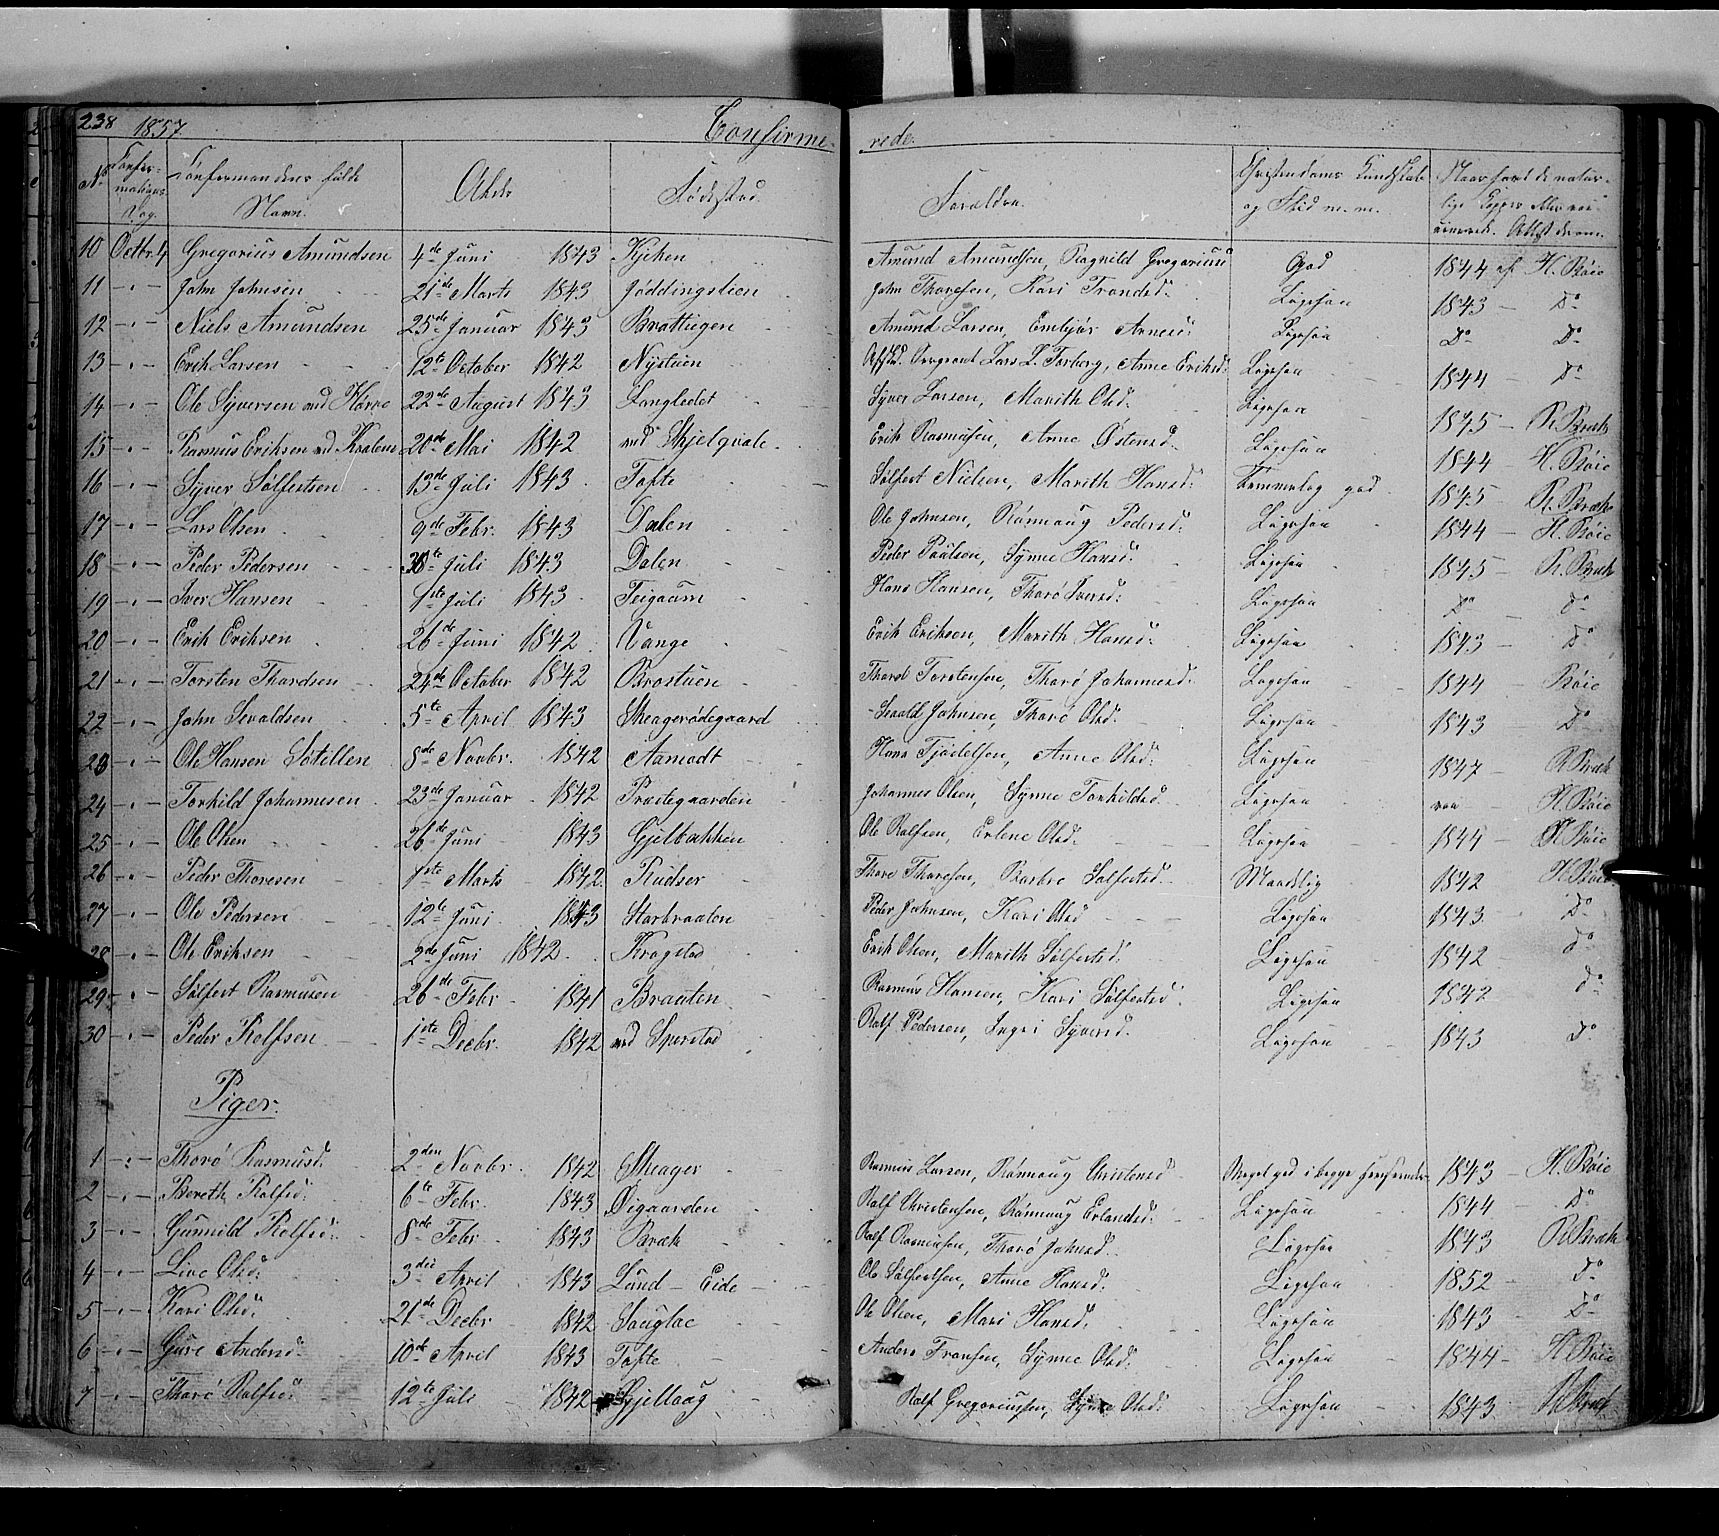 238 1857 Confirme- rede.
No Confir- Confirmandens fulde Alder Fødested Forældre. Christendoms Kundskab Naar havt de natur-
mations Navn. og Flid m. m. lige Kopper eller vac-
Dag. cinerede. Attest derom.
10 Octbr. 4 Gregorius Amundsen 4de Juni 1843 Kjiken Amund Amundsen, Ragnild Gregoriusd God 1844 af H. Bøie
11 -"- John Johnsen 21de Marts 1843 Jøddingslien John Thoresen, Kari Trondsd: Ligesaa 1843 - Do
12 -"- Niels Amundsen 25de Januar 1843 Brattugen Amund Larsen, Embjør Arnesd: Ligesaa Do Do
13 -"- Erik Larsen 12te October 1842 Nystuen Afsked. Sergeant Lars L. Forberg, Anne Eriksd: Ligesaa 1844 - Do
14 -"- Ole Syversen ved Harpe 22de August 1843 Langledet Syver Larsen, Marith Olsd. Ligesaa 1845 - R. Bræk
15 -"- Rasmus Eriksen ved Kvalene 20de Mai 1842 ved Skjelqvale Erik Rasmusen, Anne Østensd. Ligesaa 1844 - H. Bøie
16 -"- Syver Sølfestsen 13de Juli 1843 Tofte Sølfest Nielsen, Marith Hansd: Temmelig god 1845 - R. Bræk
17 -"- Lars Olsen 9de Febr. 1843 Dalen Ole Johnsen, Rønnaug Pedersd: Ligesaa 1844 - H. Bøie
18 -"- Peder Pedersen 30te Juli 1843 Dalen Peder Paulsen, Synne Hansd: Ligesaa 1845 - R. Bræk
19 -"- Iver Hansen 1ste Juli 1843 Teigaum Hans Hansen, Thorø Iversd: Ligesaa Do Do
20 -"- Erik Eriksen 26de Juni 1842 Vange Erik Eriksen, Marith Hansd: Ligesaa 1843 - Do
21 -"- Torsten Thordsen 24de October 1842 Brostuen Thord Torstensen, Thorø Johannesd: Ligesaa 1844 Bøie
22 -"- John Sevaldsen 5te April 1843 Skagerødegaard Sevald Johnsen, Thorø Olsd: Ligesaa 1843 Do
23 -"- Ole Hansen Søtellen 8de Novbr. 1842 Aamodt Hans Tjødelsen, Anne Olsd: Ligesaa 1847 - R. Bræk
24 -"- Torkild Johannesen 23de Januar 1842 Præstegaarden Johannes Olsen, Synne Torkildsd: Ligesaa vac H. Bøie
25 -"- Ole Olsen 26de Juni 1843 Gjelbakken Ole Rolfsen, Erlene Olsd: Ligesaa 1844 - H. Bøie
26 -"- Peder Thoresen 1ste Marts 1842 Rudser Thore Thoresen, Barbro Sølfestsd. Maadelig 1842 H. Bøie
27 -"- Ole Pedersen 12te Juni 1843 Storbraaten Peder Johnsen, Kari Olsd Ligesaa 1843 Do
28 -"- Ole Eriksen 2de Juni 1842. Krogstad Erik Olsen, Marith Sølfestsd: Ligesaa 1842 Do
29 -"- Sølfest Rasmusen 26de Febr. 1841 Braaten Rasmus Hansen, Kari Sølfestsd. Ligesaa 1842 Do
30 -"- Peder Rolfsen 1ste Decbr. 1842 ved Sperstad Rolf Pedersen, Ingri Syversd. Ligesaa 1843 Do
Piger.
1 -"- Thorø Rasmusd. 2den Novbr. 1842 Skager Rasmus Larsen, Rønnaug Christensd. Meget god i begge Henseender 1843 - H. Bøie
2 -"- Bereth Rolfsd: 6te Febr. 1843 Øigaarden Rolf Christensen, Rønnaug Erlandsd: Ligesaa 1844 Do
3 -"- Gunnild Rolfsd: 8de Febr. 1843 Bræk Rolf Rasmusen, Thorø Johnsd. Ligesaa 1843 R. Bræk
4 -"- Live Olsd: 3die April 1843 Lund - Eide Ole Sølfestsen, Anne Hansd: Ligesaa 1852 - Do
5 -"- Kari Olsd: 21de Decbr. 1842 Sauglae Ole Olsen, Mari Hansd: Ligesaa 1843 Do
6 -"- Guro Andersd: 10de April 1843 Tofte Anders Fransen, Synne Olsd: Ligesaa 1844 - H. Bøie
7 -"- Thorø Rolfsd: 12te Juli 1842 Gjelhaug Rolf Gregoriussen, Synne Olsd: Ligesaa 1843 R. Bræk